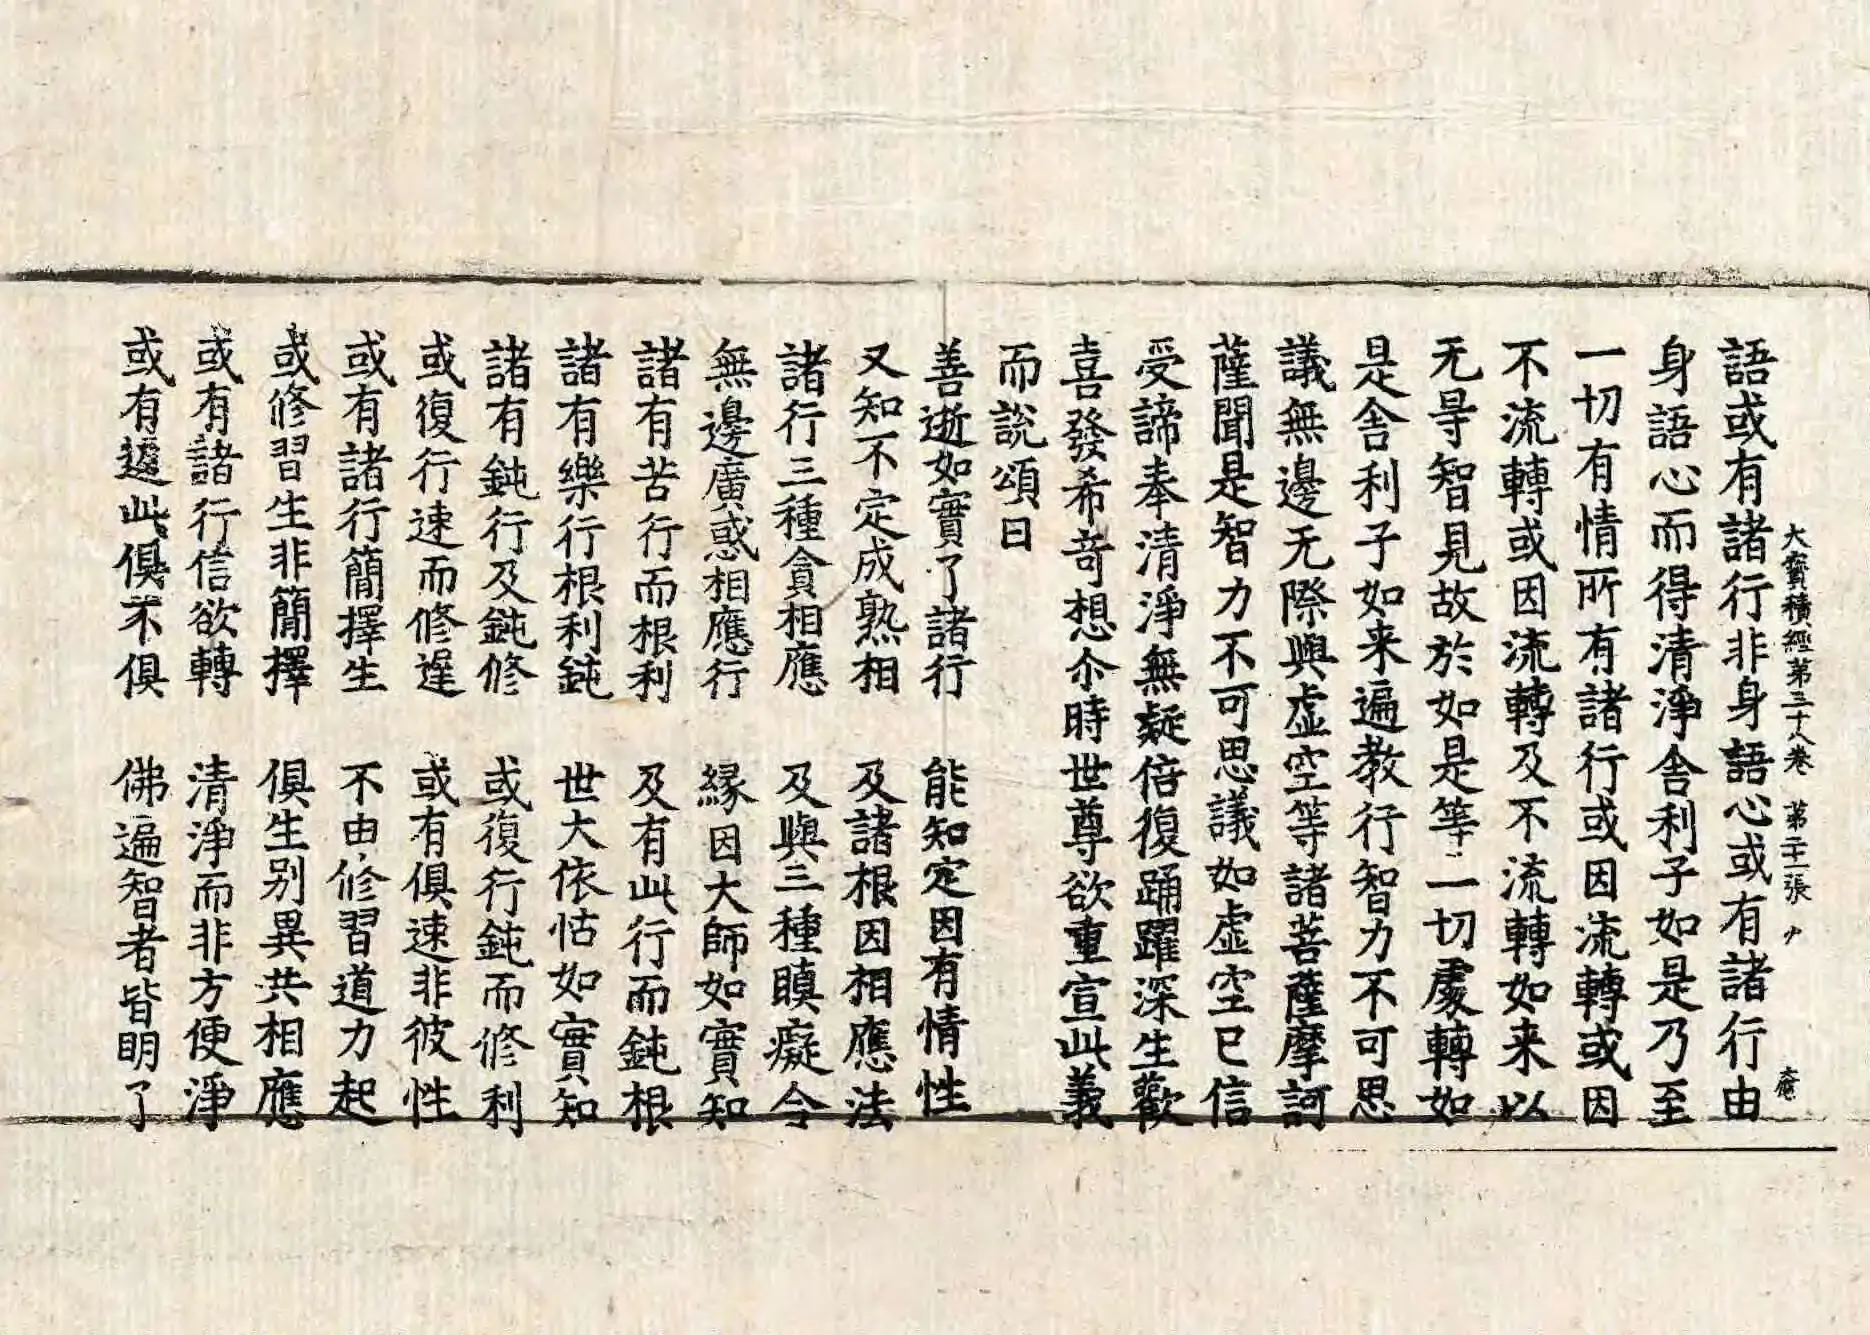 大寶積經第三十八卷 第二十二張 少
語或有諸行非身語心或有諸行由
身語心而得清淨舍利子如是乃至
一切有情所有諸行或因流轉或因
不流轉或因流轉及不流轉如来以
无㝵智見故於如是等一切處轉如
是舍利子如来遍教行智力不可思
議無邊无際與虚空等諸菩薩摩訶
薩聞是智力不可思議如虚空已信
受諦奉清淨無疑倍復踊躍深生歡
喜發希竒想尒時世尊欲重宣此義
而說頌曰
善逝如實了諸行 能知定因有情性
又知不定成熟相 及諸根因相應法
諸行三種貪相應 及與三種瞋癡令
無邊廣惑相應行 緣因大師如實知
諸有苦行而根利 及有此行而鈍根
諸有樂行根利鈍 世大依怙如實知
諸有鈍行及鈍修 或復行鈍而修利
或復行速而修遲 或有俱速非彼性
或有諸行簡擇生 不由修習道力起
或修習生非簡擇 俱生别異共相應
或有諸行信欲轉 清淨而非方便淨
或有違此俱不俱 佛遍智者皆明了